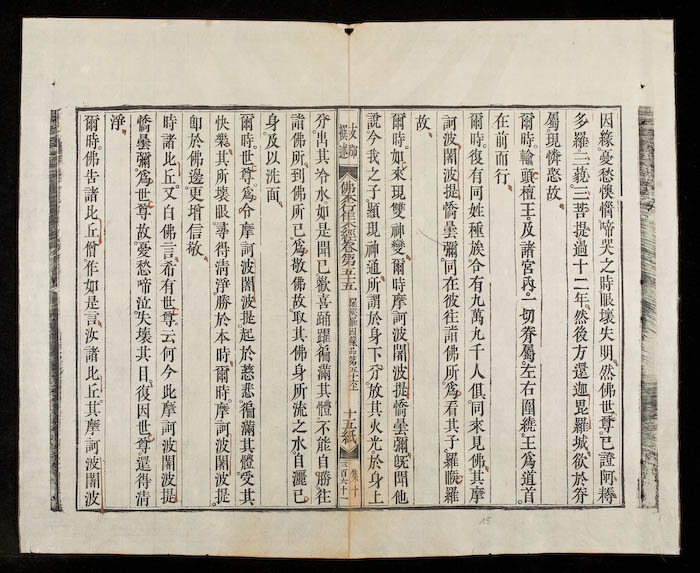 因緣憂愁懊惱啼哭之時眼壞失明然佛世尊已證阿耨
多羅三藐三菩提過十二年然後方還迦毘羅城欲於眷
屬現憐愍故
爾時輸頭檀王及諸宮內一切眷屬左右圍繞王爲道首
在前而行
爾時復有同姓種族合有九萬九千人俱同來見佛其摩
訶波闍波提憍曇彌同在彼往詣佛所爲看其子羅睺羅
故
爾時如來現雙神變爾時摩訶波闍波提憍曇彌旣聞他
說今我之子顯現神通所謂於身下分放其火光於身上
支那
撰述
佛本行集經卷第五十五
羅睺羅因緣品第五十六上
十五紙
集十
三百六十一
分出其冷水如是聞已歡喜踊躍徧滿其體不能自勝往
詣佛所到佛所已爲敬佛故取其佛身所流之水自灑已
身及以洗面
爾時世尊爲令摩訶波闍波提起於慈悲徧滿其體受其
快樂其所壞眼尋得淸淨勝於本時爾時摩訶波闍波提
卽於佛邊更增信敬
時諸比丘又白佛言希有世尊云何今此摩訶波闍波提
憍曇彌爲世尊故憂愁啼泣失壞其目復因世尊還得淸
淨
爾時佛告諸比丘僧作如是言汝諸比丘其摩訶波闍波
15